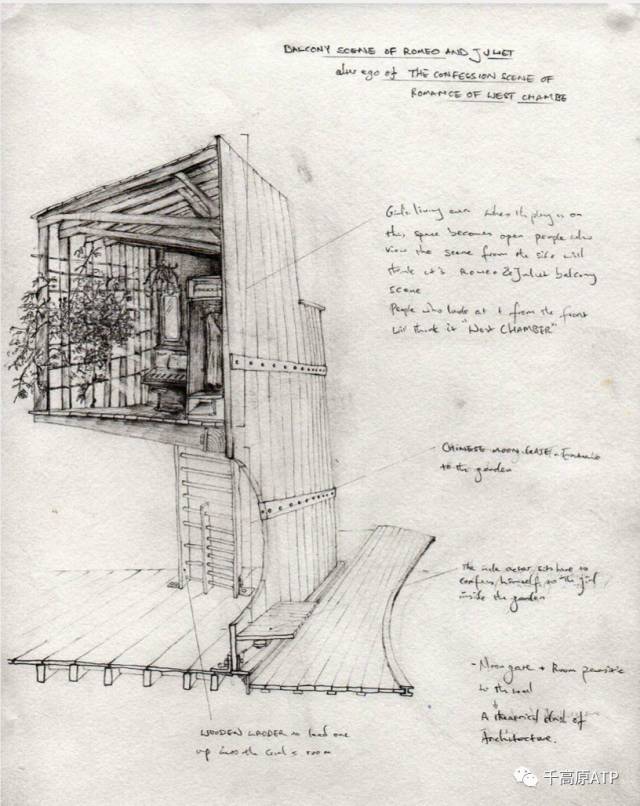 BALCONY SCENE OF ROMEO AND JULIET
alter ego of THE CONFESSION SCENE OF
ROMANCE OF WEST CHAMBE
Girls living when the play is on
this space becomes open people who
view the scene from the side will
think it's Romeo & Juliet balcony
scene
People who look at it from the front
will think it "WEST CHAMBER"
CHINESE MOON GATE - Entrance
to the garden
The male actor sits here to
confess himself to the girl
inside the garden
- Moon gate + Room parasitic
to the wall
A theatrical of
Architecture.
WOODEN LADDER to lead one
up into the Girl's room
千高原ATP